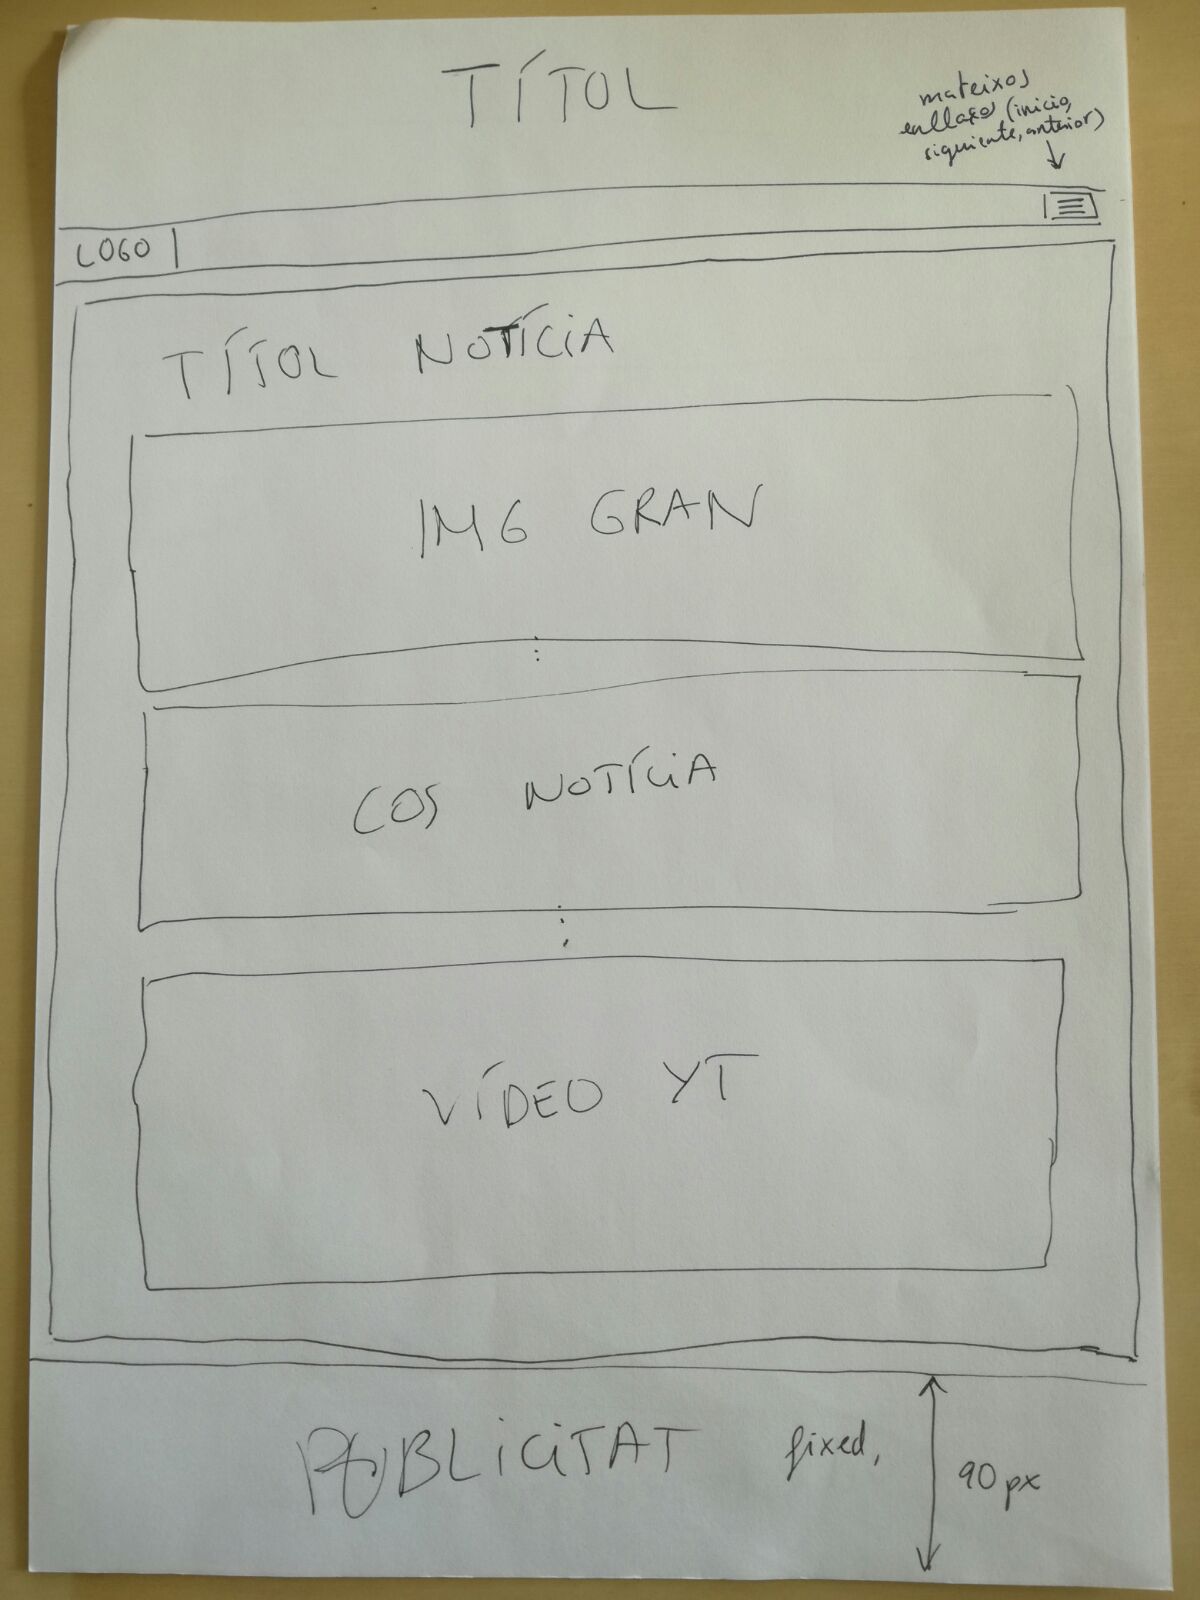 TÍTOL
mateixos
enllaços (inicio,
siguiente, anterior)
LOGO
TÍTOL NOTÍCIA
IMG GRAN
COS NOTÍCIA
VÍDEO YT
PUBLICITAT fixed,
90 px